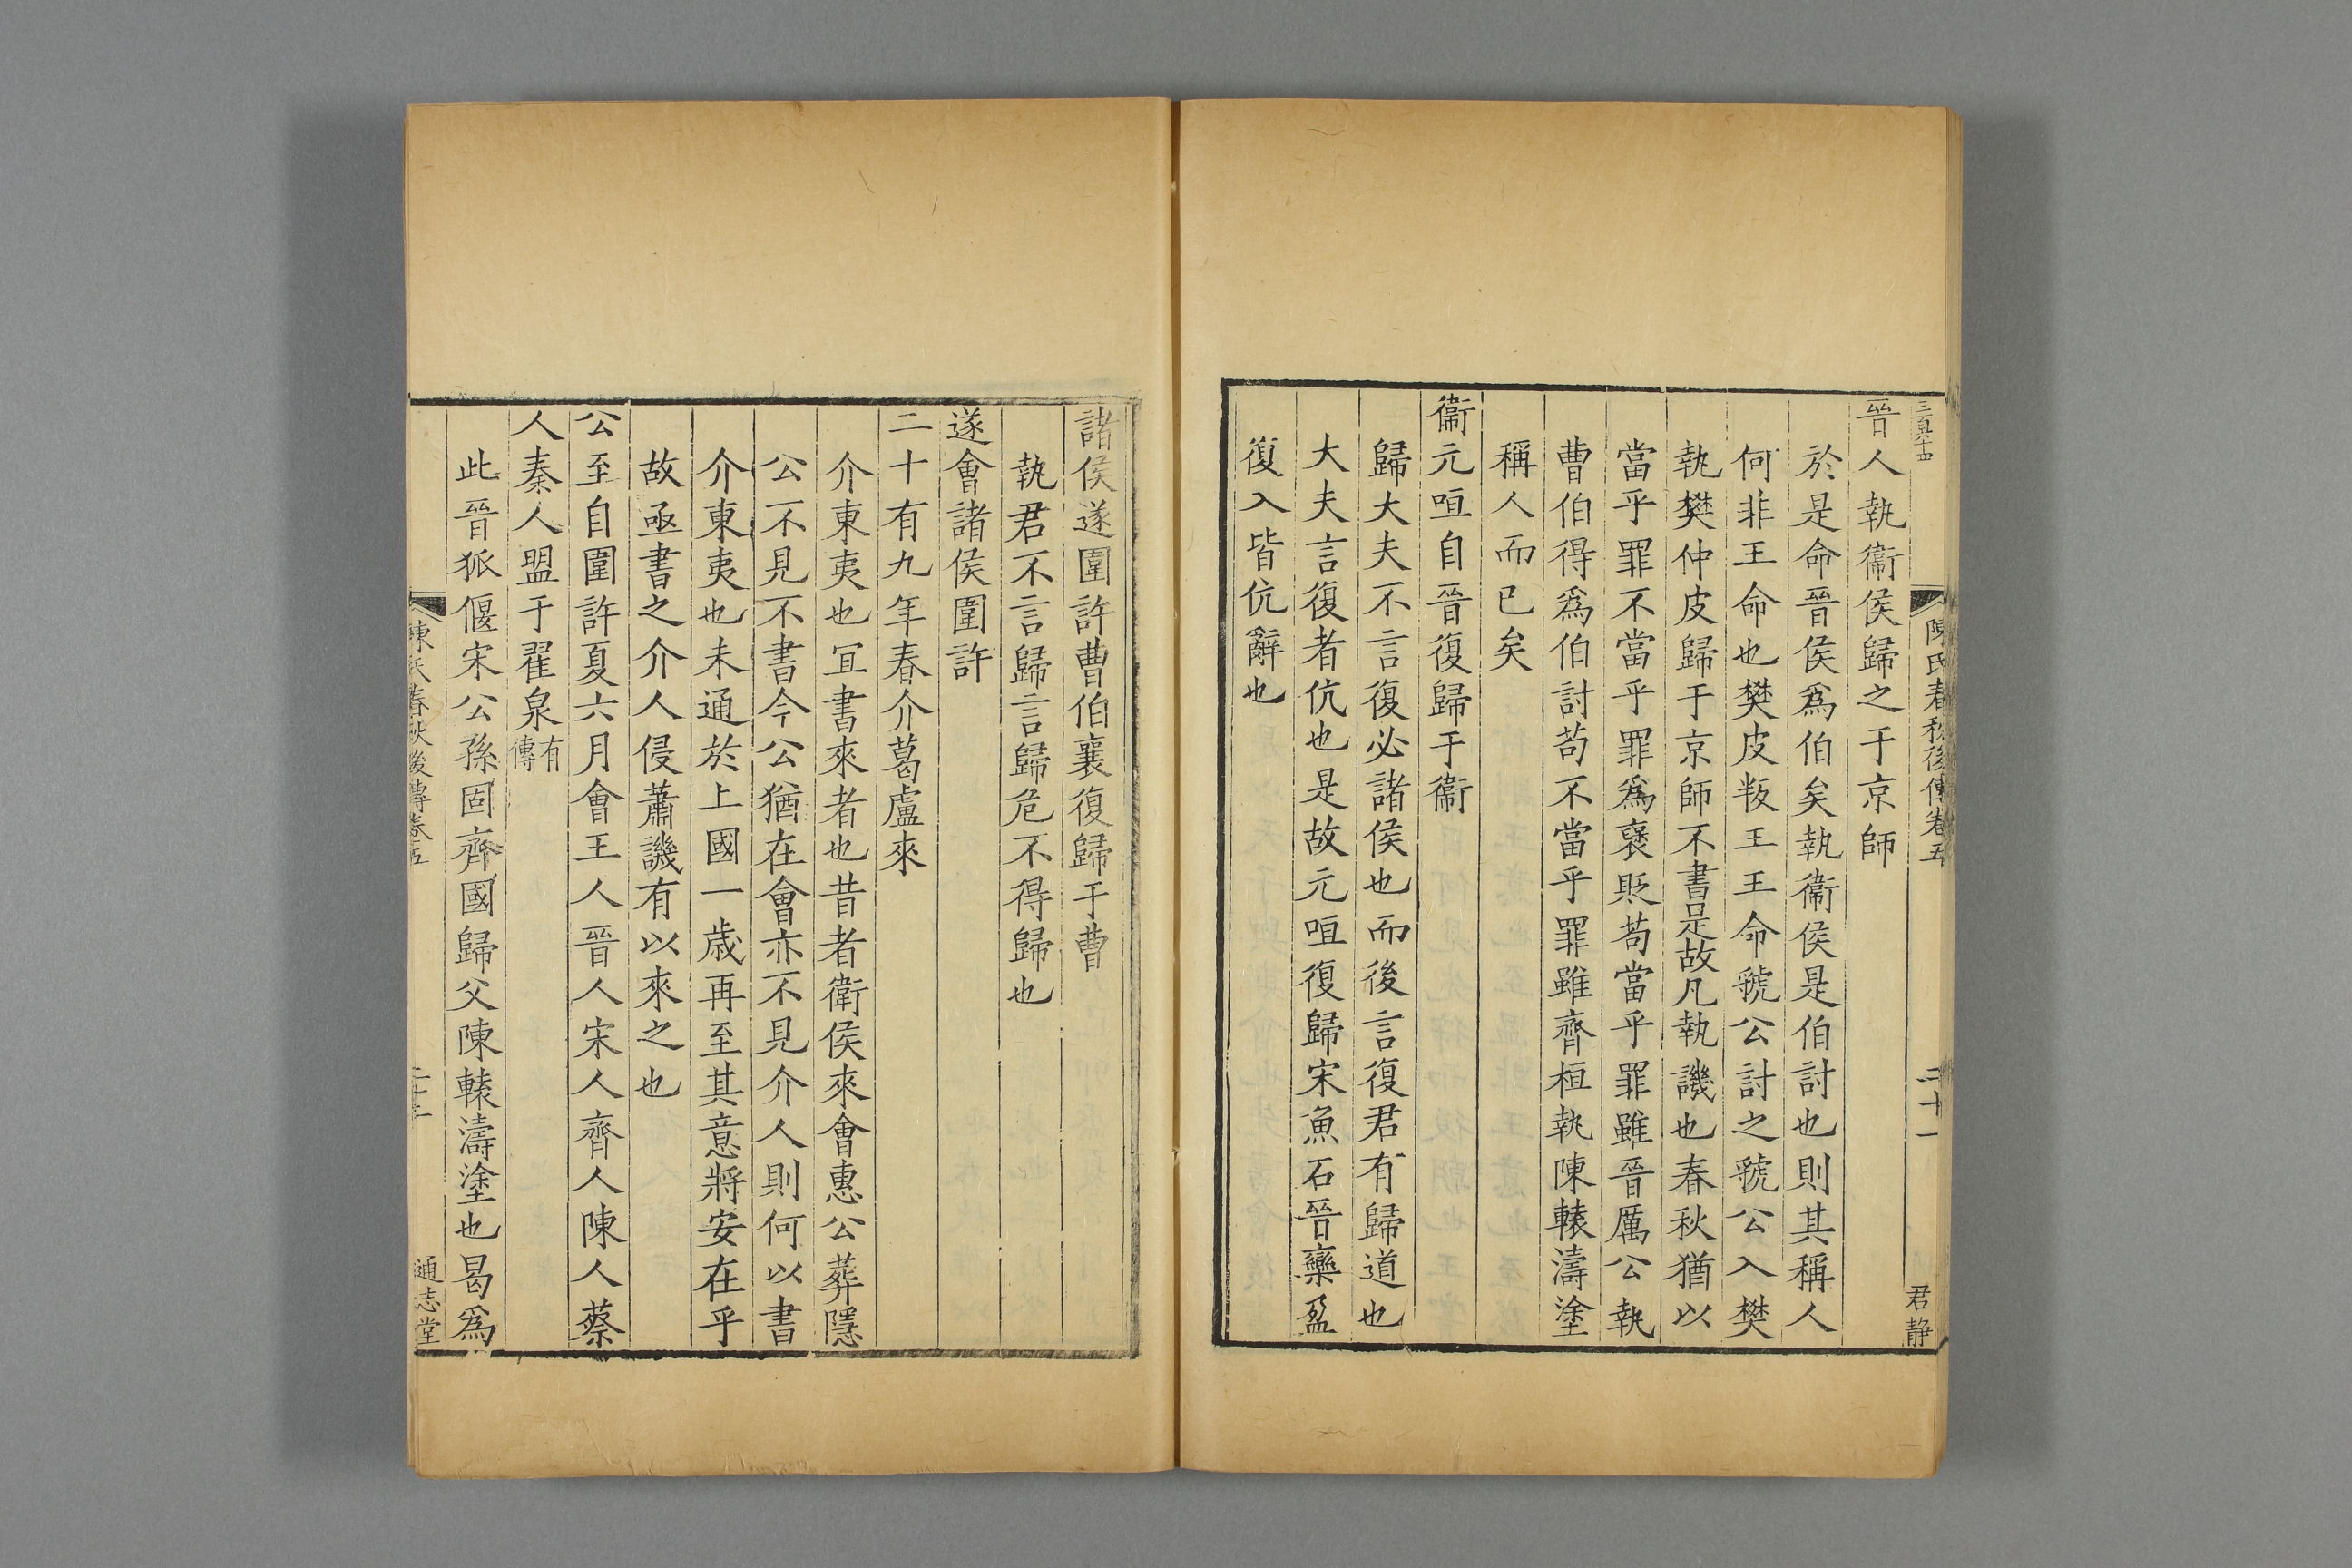 三百六十四
陳氏春秋後傳卷五
二十一
君静
晉人執衞侯歸之于京師
於是命晉侯爲伯矣執衞侯是伯討也則其稱人
何非王命也樊皮叛王王命虢公討之虢公入樊
執樊仲皮歸于京師不書是故凡執譏也春秋猶以
當乎罪不當乎罪爲襃貶苟當乎罪雖晉厲公執
曹伯得爲伯討苟不當乎罪雖齊桓執陳轅濤塗
稱人而已矣
衞元咺自晉復歸于衞
歸大夫不言復必諸侯也而後言復君有歸道也
大夫言復者伉也是故元咺復歸宋魚石晉欒盈
復入皆伉辭也
諸侯遂圍許曹伯襄復歸于曹
執君不言歸言歸危不得歸也
遂會諸侯圍許
二十有九年春介葛盧來
介東夷也宜書來者也昔者衛侯來會惠公葬隱
公不見不書今公猶在會亦不見介人則何以書
介東夷也未通於上國一歲再至其意將安在乎
故亟書之介人侵蕭譏有以來之也
公至自圍許夏六月會王人晉人宋人齊人陳人蔡
人秦人盟于翟泉有傳
此晉狐偃宋公孫固齊國歸父陳轅濤塗也曷爲
陳氏春秋後傳卷五
通志堂